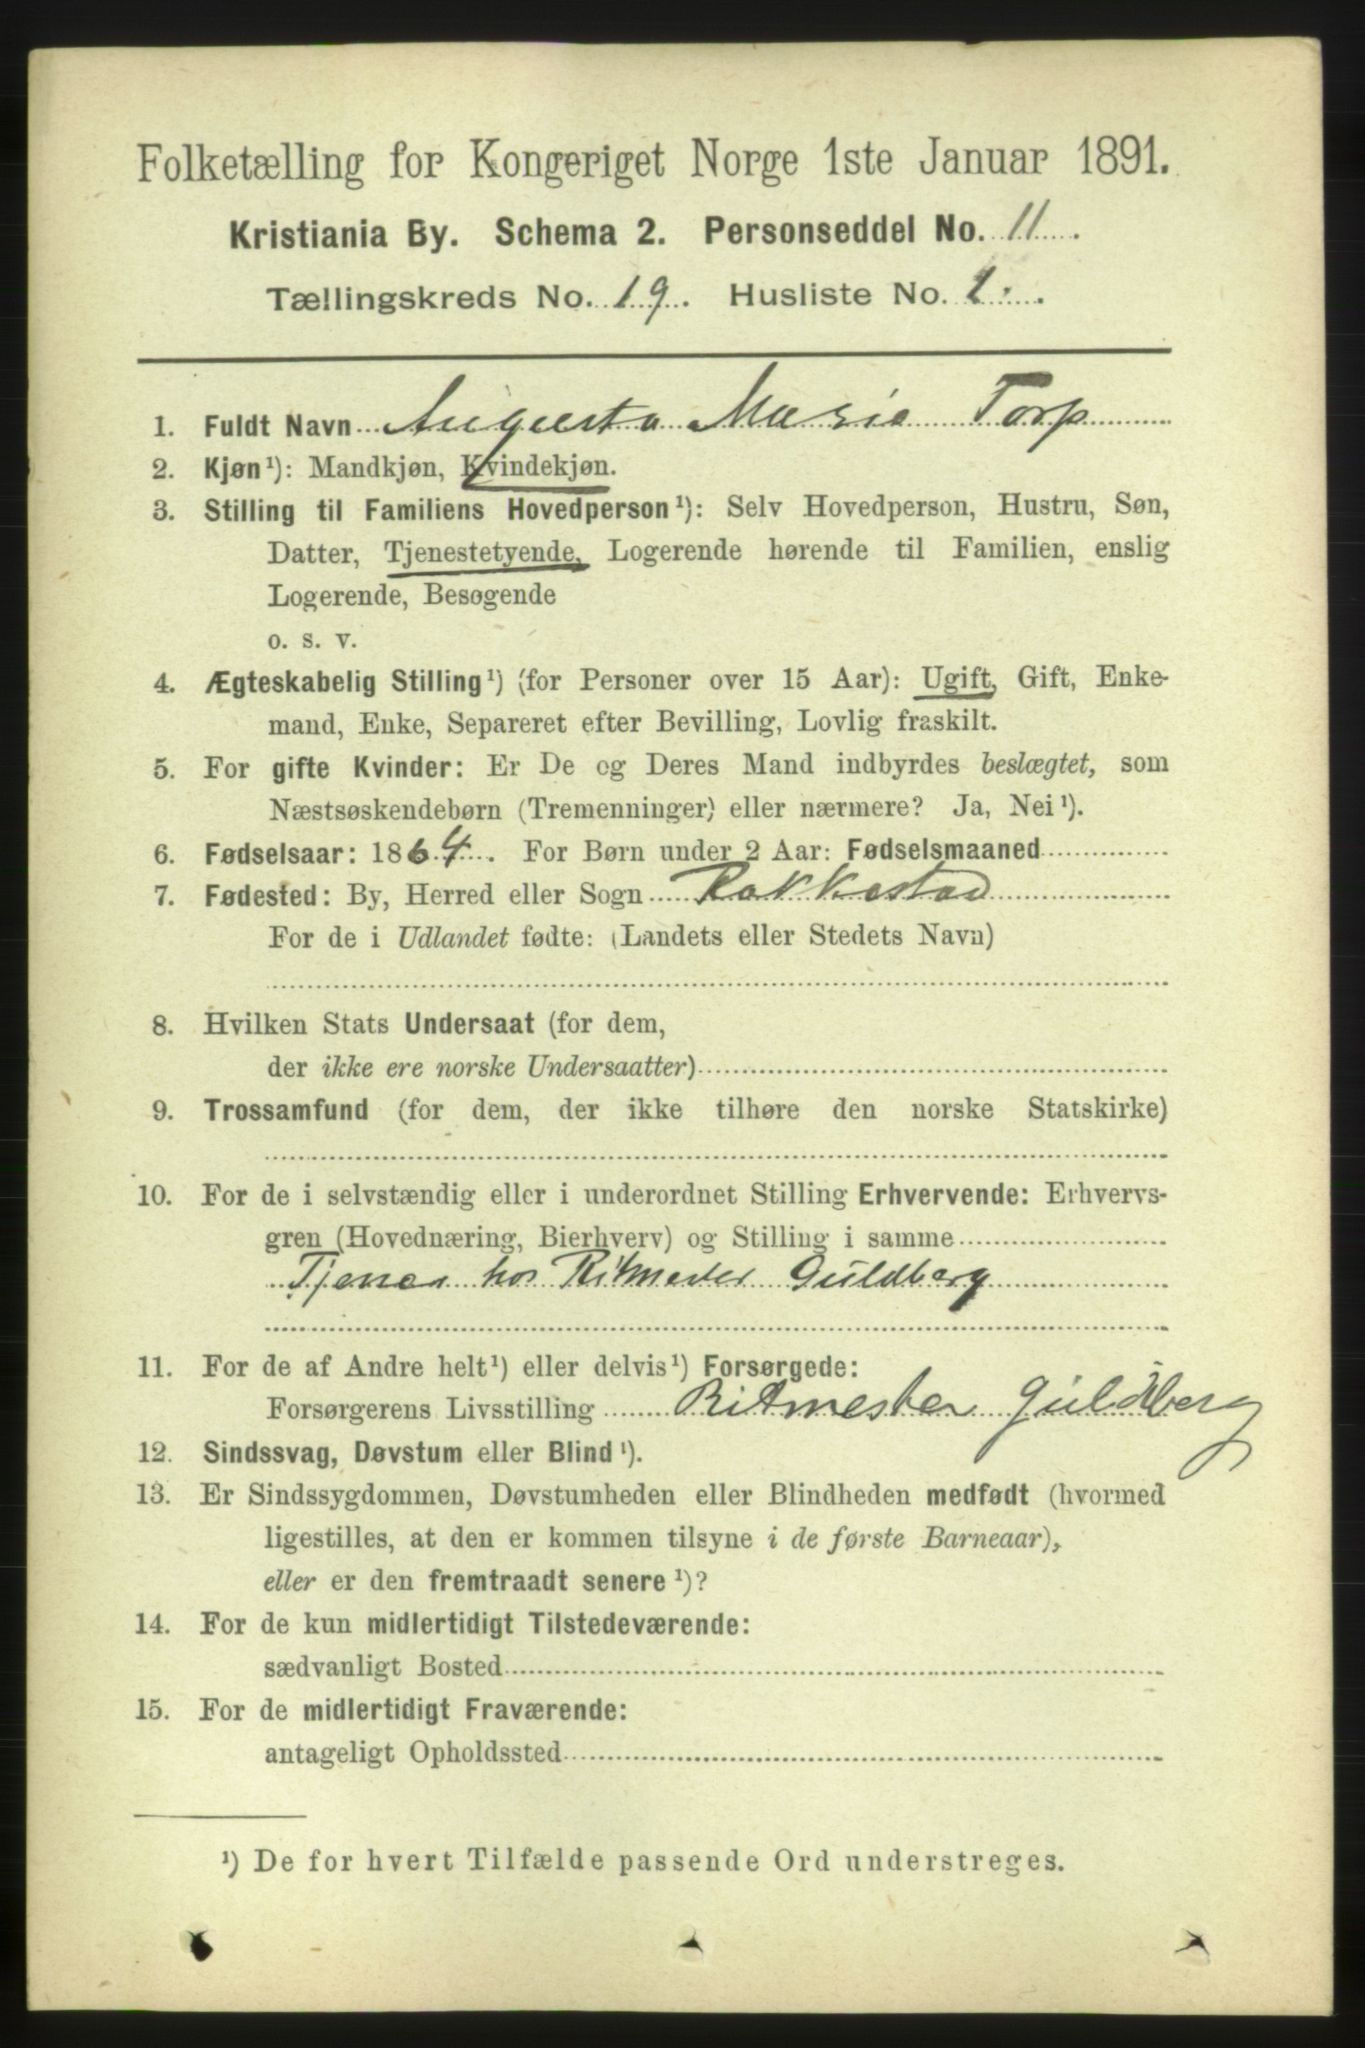 Folketælling for Kongeriget Norge 1ste Januar 1891.
Kristiania By. Schema 2. Personseddel No. 11.
Tællingskreds No. 19. Husliste No. 1.
1. Fuldt Navn Augusta Marie Torp
2. Kjøn¹): Mandkjøn, Kvindekjøn.
3. Stilling til Familiens Hovedperson¹): Selv Hovedperson, Hustru, Søn,
Datter, Tjenestetyende, Logerende hørende til Familien, enslig
Logerende, Besøgende
o. s. v.
4. Ægteskabelig Stilling¹) (for Personer over 15 Aar): Ugift, Gift, Enke-
mand, Enke, Separeret efter Bevilling, Lovlig fraskilt.
5. For gifte Kvinder: Er De og Deres Mand indbyrdes beslægtet, som
Næstsøskendebørn (Tremenninger) eller nærmere? Ja, Nei¹).
6. Fødselsaar: 1864. For Børn under 2 Aar: Fødselsmaaned
7. Fødested: By, Herred eller Sogn Rakkestad
For de i Udlandet fødte: (Landets eller Stedets Navn)
8. Hvilken Stats Undersaat (for dem,
der ikke ere norske Undersaatter)
9. Trossamfund (for dem, der ikke tilhøre den norske Statskirke)
10. For de i selvstændig eller i underordnet Stilling Erhvervende: Erhvervs-
gren (Hovednæring, Bierhverv) og Stilling i samme
Tjener hos Ritmester Guldberg
11. For de af Andre helt¹) eller delvis¹) Forsørgede:
Forsørgerens Livsstilling Ritmester Guldberg
12. Sindssvag, Døvstum eller Blind¹).
13. Er Sindssygdommen, Døvstumheden eller Blindheden medfødt (hvormed
ligestilles, at den er kommen tilsyne i de første Barneaar),
eller er den fremtraadt senere¹)?
14. For de kun midlertidigt Tilstedeværende:
sædvanligt Bosted
15. For de midlertidigt Fraværende:
antageligt Opholdssted
¹) De for hvert Tilfælde passende Ord understreges.